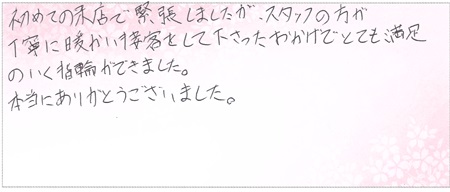 初めての来店で緊張しましたが、スタッフの方が
丁寧に暖かい接客をして下さったおかげでとても満足
のいく指輪ができました。
本当にありがとうございました。